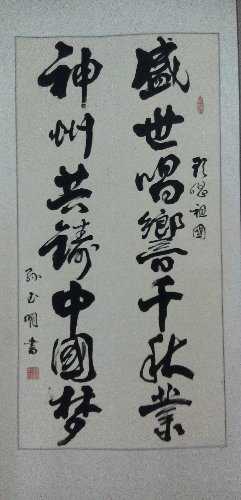 盛世唱響千秋業
歌唱祖國
神州共鑄中國梦
孙玉明書